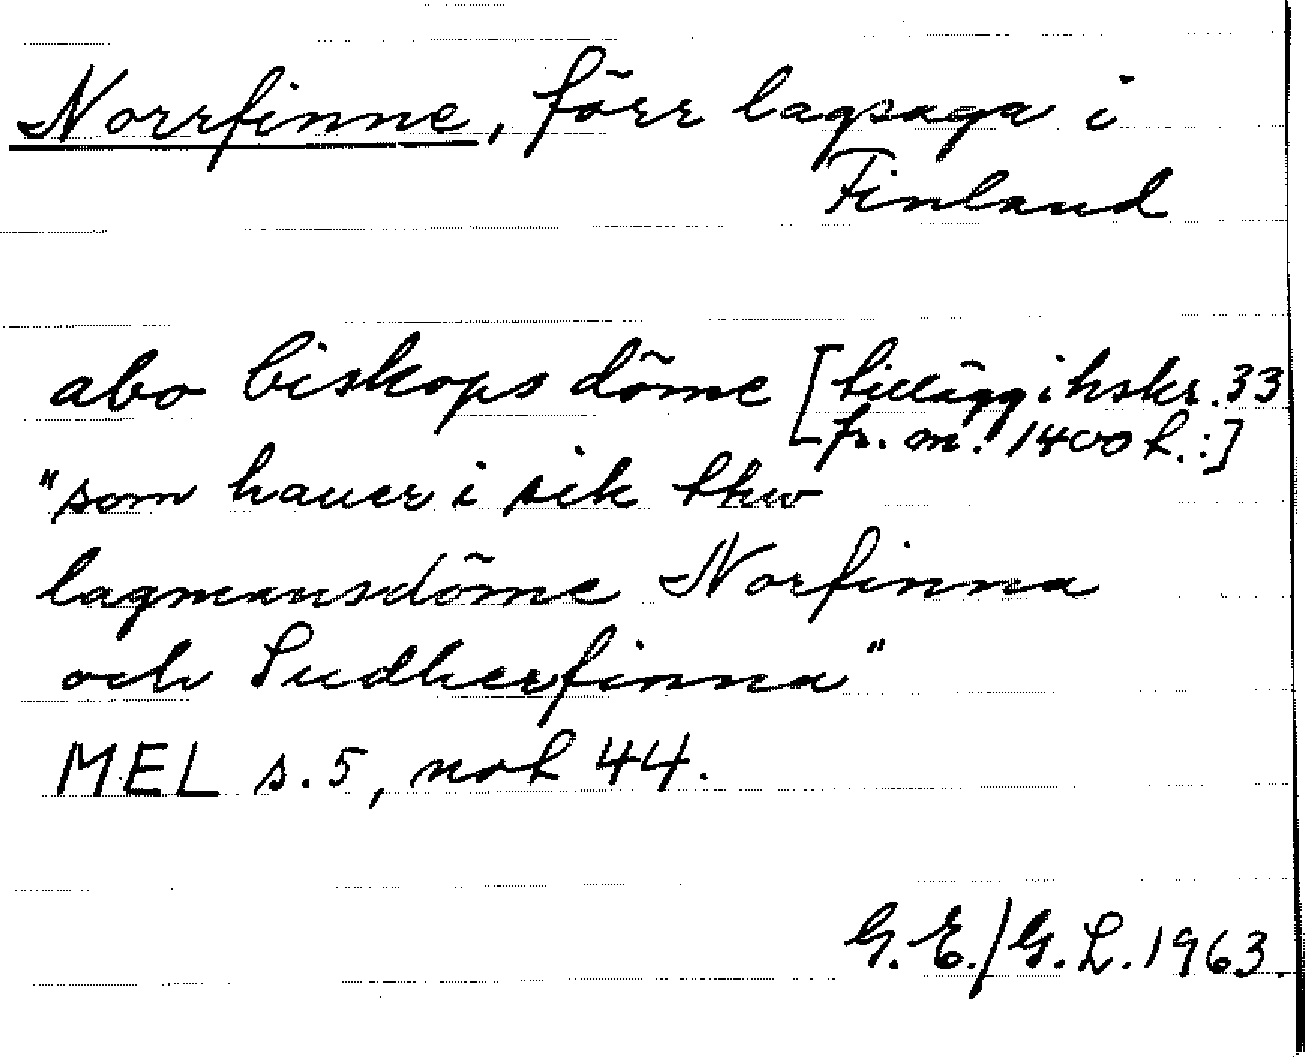 Norrfinne, förr lagsaga i
Finland
abo biskops döme [tillägg i hskr. 33
fr. m. 1400 t.:]
"som hauer i sik thw
lagmansdöme Norfinna
och Sudherfinna"
MEL s. 5, not 44.
G. E./G. L. 1963.